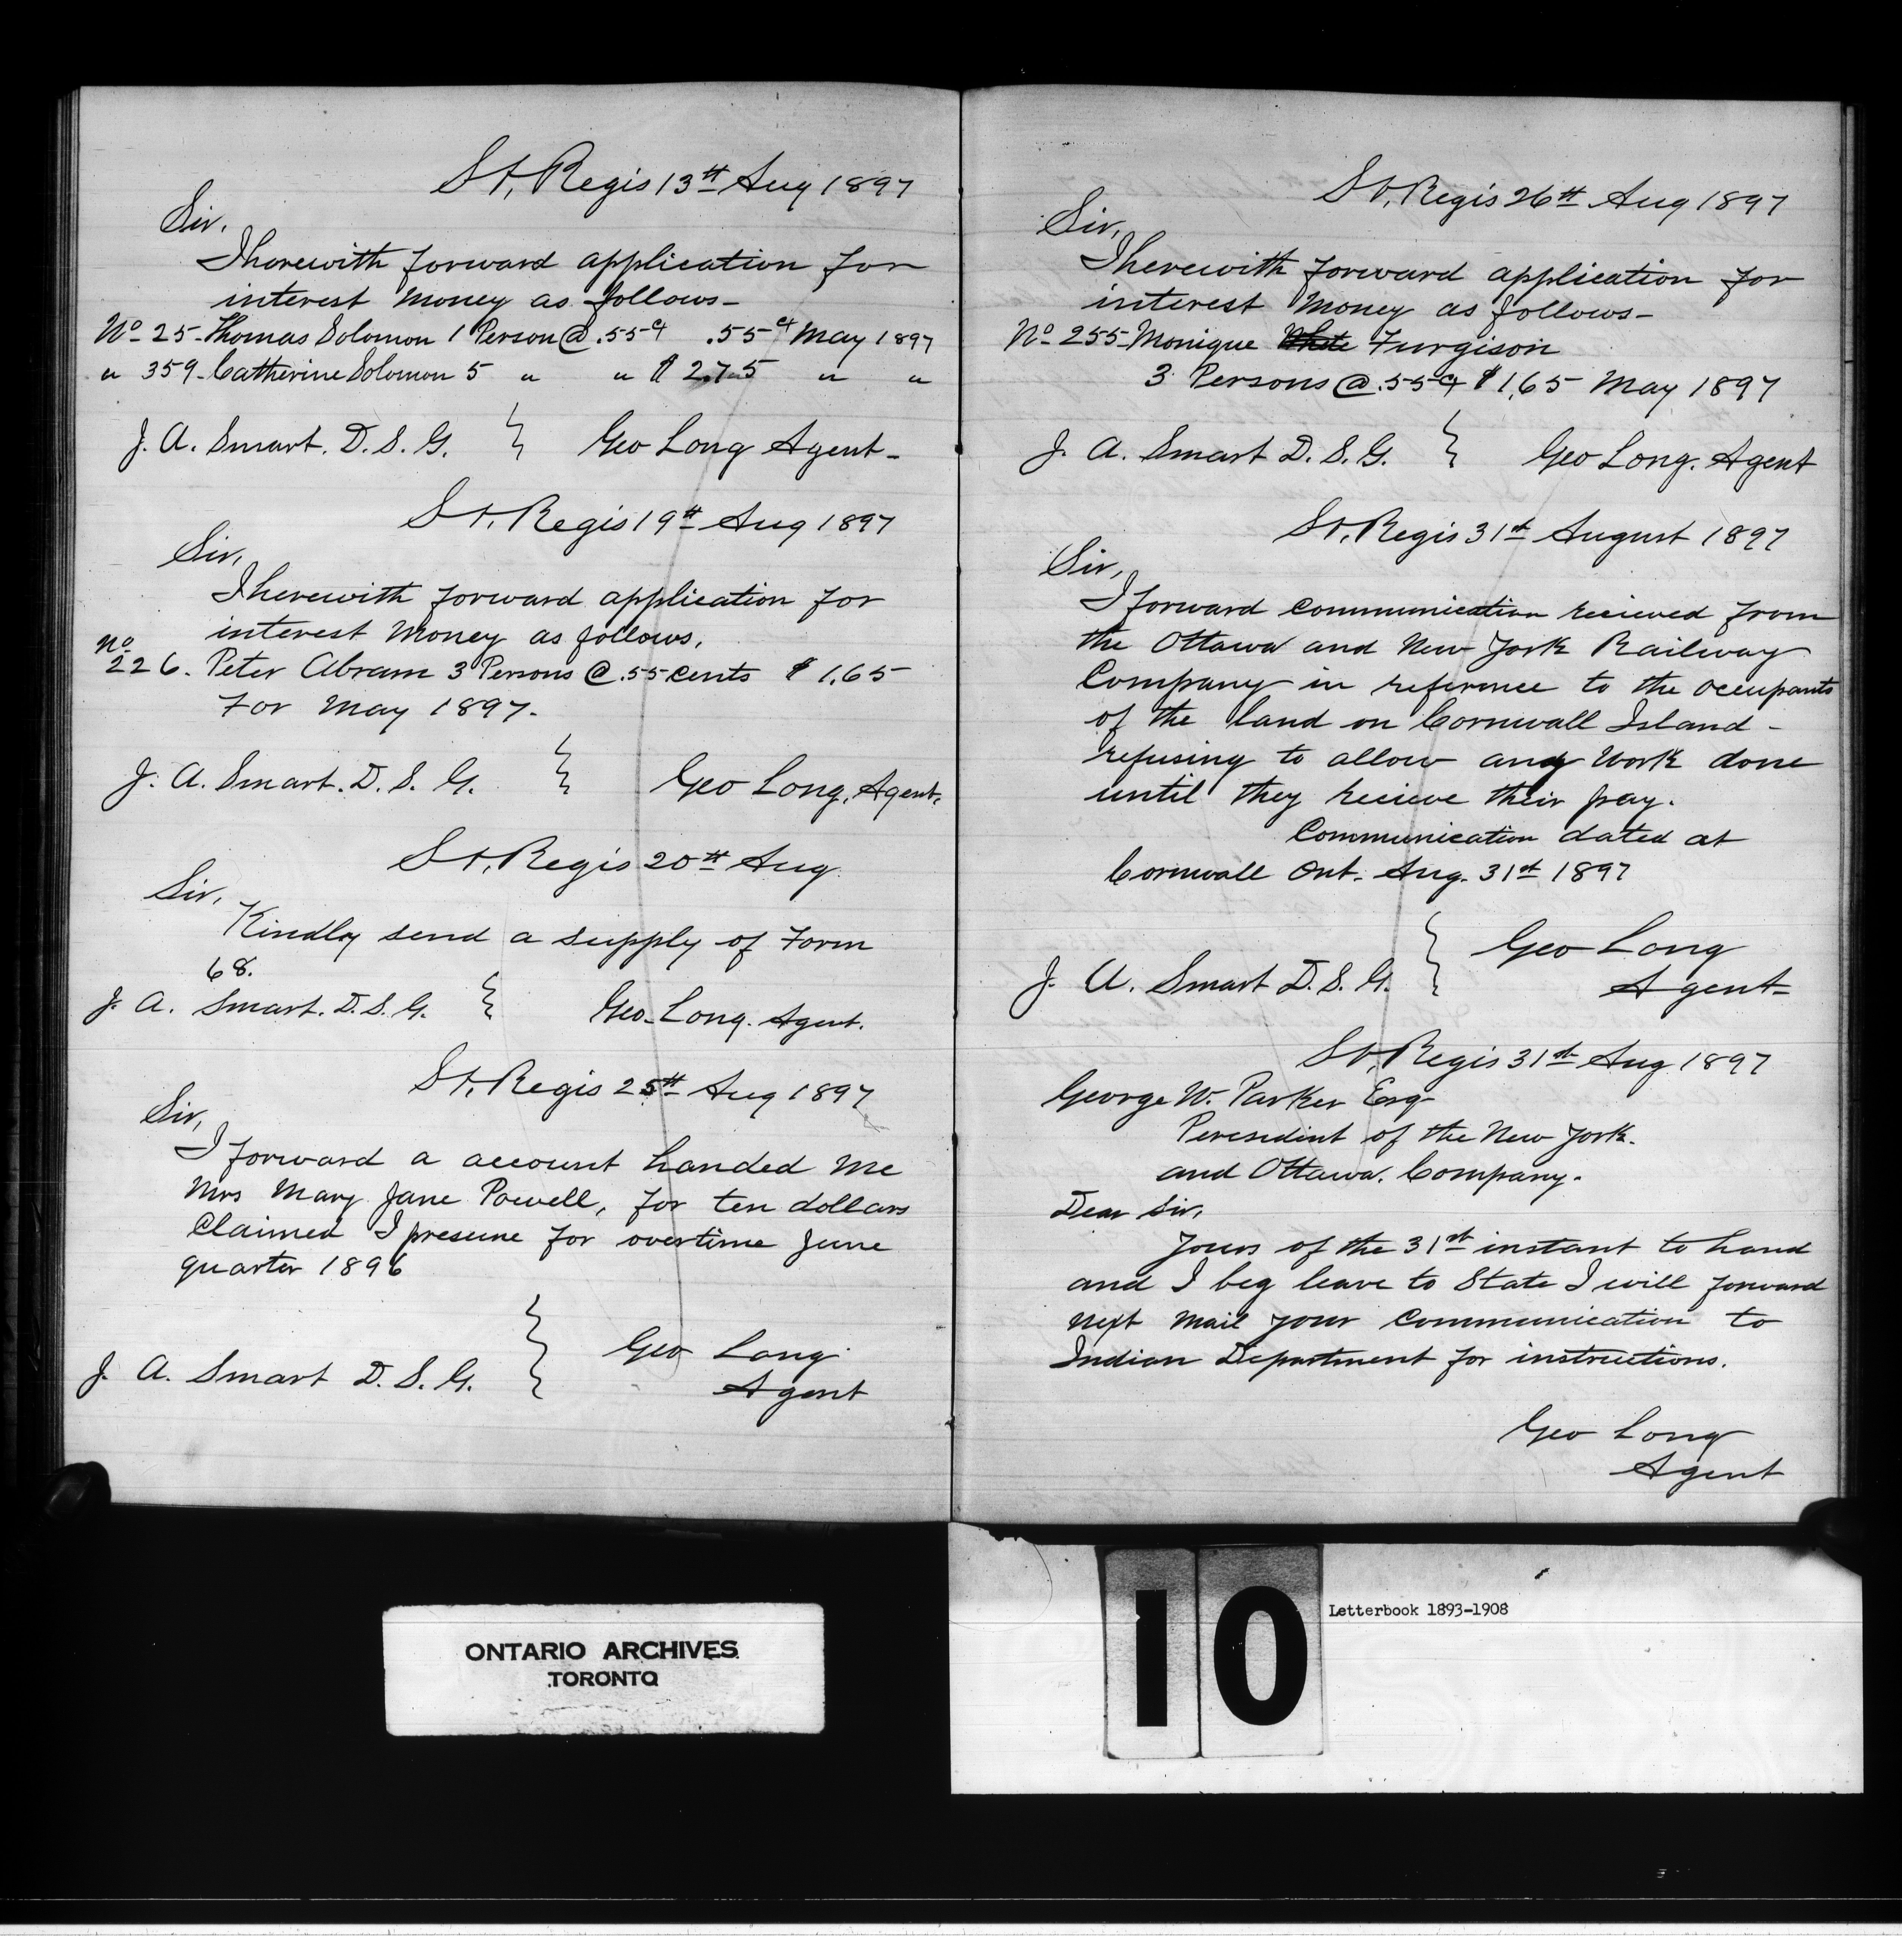 St. Regis 13th Aug 1897
Sir.
I herewith forward application for
interest money as follows-
No 25- Thomas Solomon 1 Person @ .55 ct .55 ct May 1897
" 359- Catherine Solomon 5 " " $ 2.75 " "
J. A. Smart. D. S. G. } Geo Long Agent-
St. Regis 19th Aug 1897
Sir,
I herewith forward application for
interest money as follows.
No
226. Peter Abram 3 Persons @ .55 cents $ 1.65
For May 1897.
J. A. Smart. D. S. G. } Geo Long. Agent.
St. Regis 20th Aug
Sir,
Kindly send a supply of Form
68.
J. A. Smart. D. S. G. } Geo. Long. Agent.
St. Regis 25th Aug 1897
Sir,
I forward a account handed me
Mrs Mary Jane Powell, for ten dollars
Claimed I presume for overtime June
quarter 1896
J. A. Smart D. S. G. } Geo Long
Agent
St. Regis 26th Aug 1897
Sir,
I herewith forward application for
interest money as follows-
No 255- Monique White Furgison
3 Persons @ .55 ct $ 1.65 May 1897
J. A. Smart D. S. G. } Geo Long. Agent
St. Regis 31st August 1897
Sir,
I forward communication recieved from
the Ottawa and New York Railway
Company in reference to the occupants
of the land on Cornwall Island -
refusing to allow any work done
until they recieve their pay.
Communication dated at
Cornwall Ont. Aug. 31st 1897
J. A. Smart D. S. G. } Geo Long
Agent-
St. Regis 31st Aug 1897
George W. Parker Esq-
Peresedint of the New York.
and Ottawa. Company.
Dear Sir,
Yours of the 31st instant to hand
and I beg leave to State I will forward
next mail your Communication to
Indian Department for instructions.
Geo Long
Agent
ONTARIO ARCHIVES
TORONTO
10
Letterbook 1893-1908